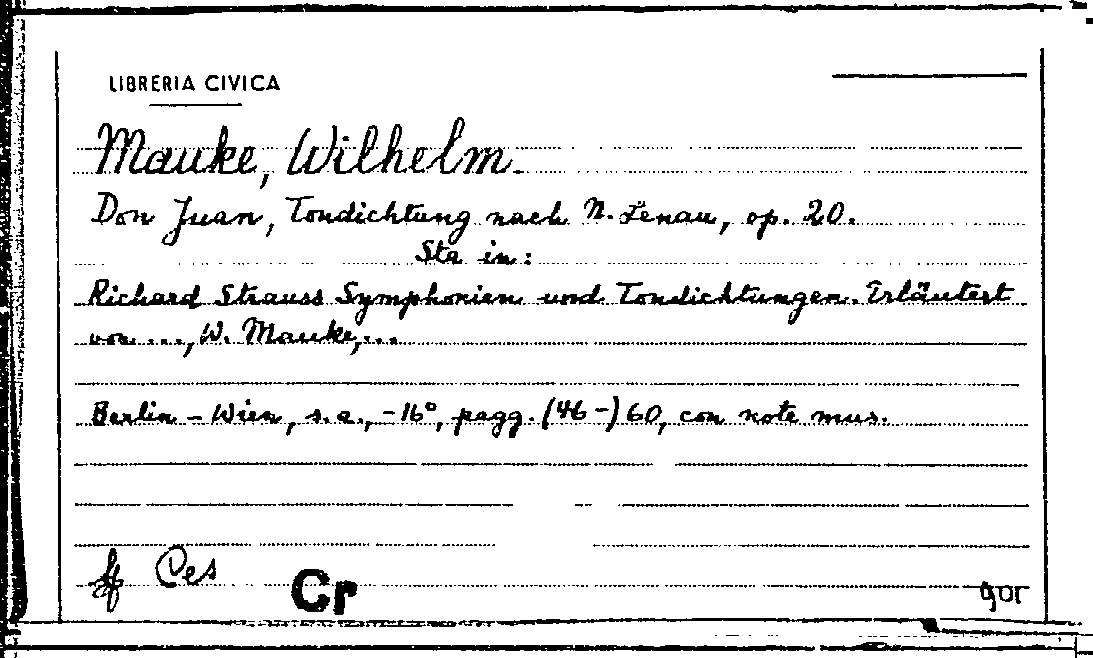 LIBRERIA CIVICA
Mauke, Wilhelm.
Don Juan, Tondichtung nach N. Lenau, op. 20.
Sta in:
Richard Strauss Symphonien und Tondichtungen. Erläutert
von ..., W. Mauke, ...
Berlin - Wien, s. a., - 16°, pagg. (46 -) 60, con note mus.
Ces
Cr